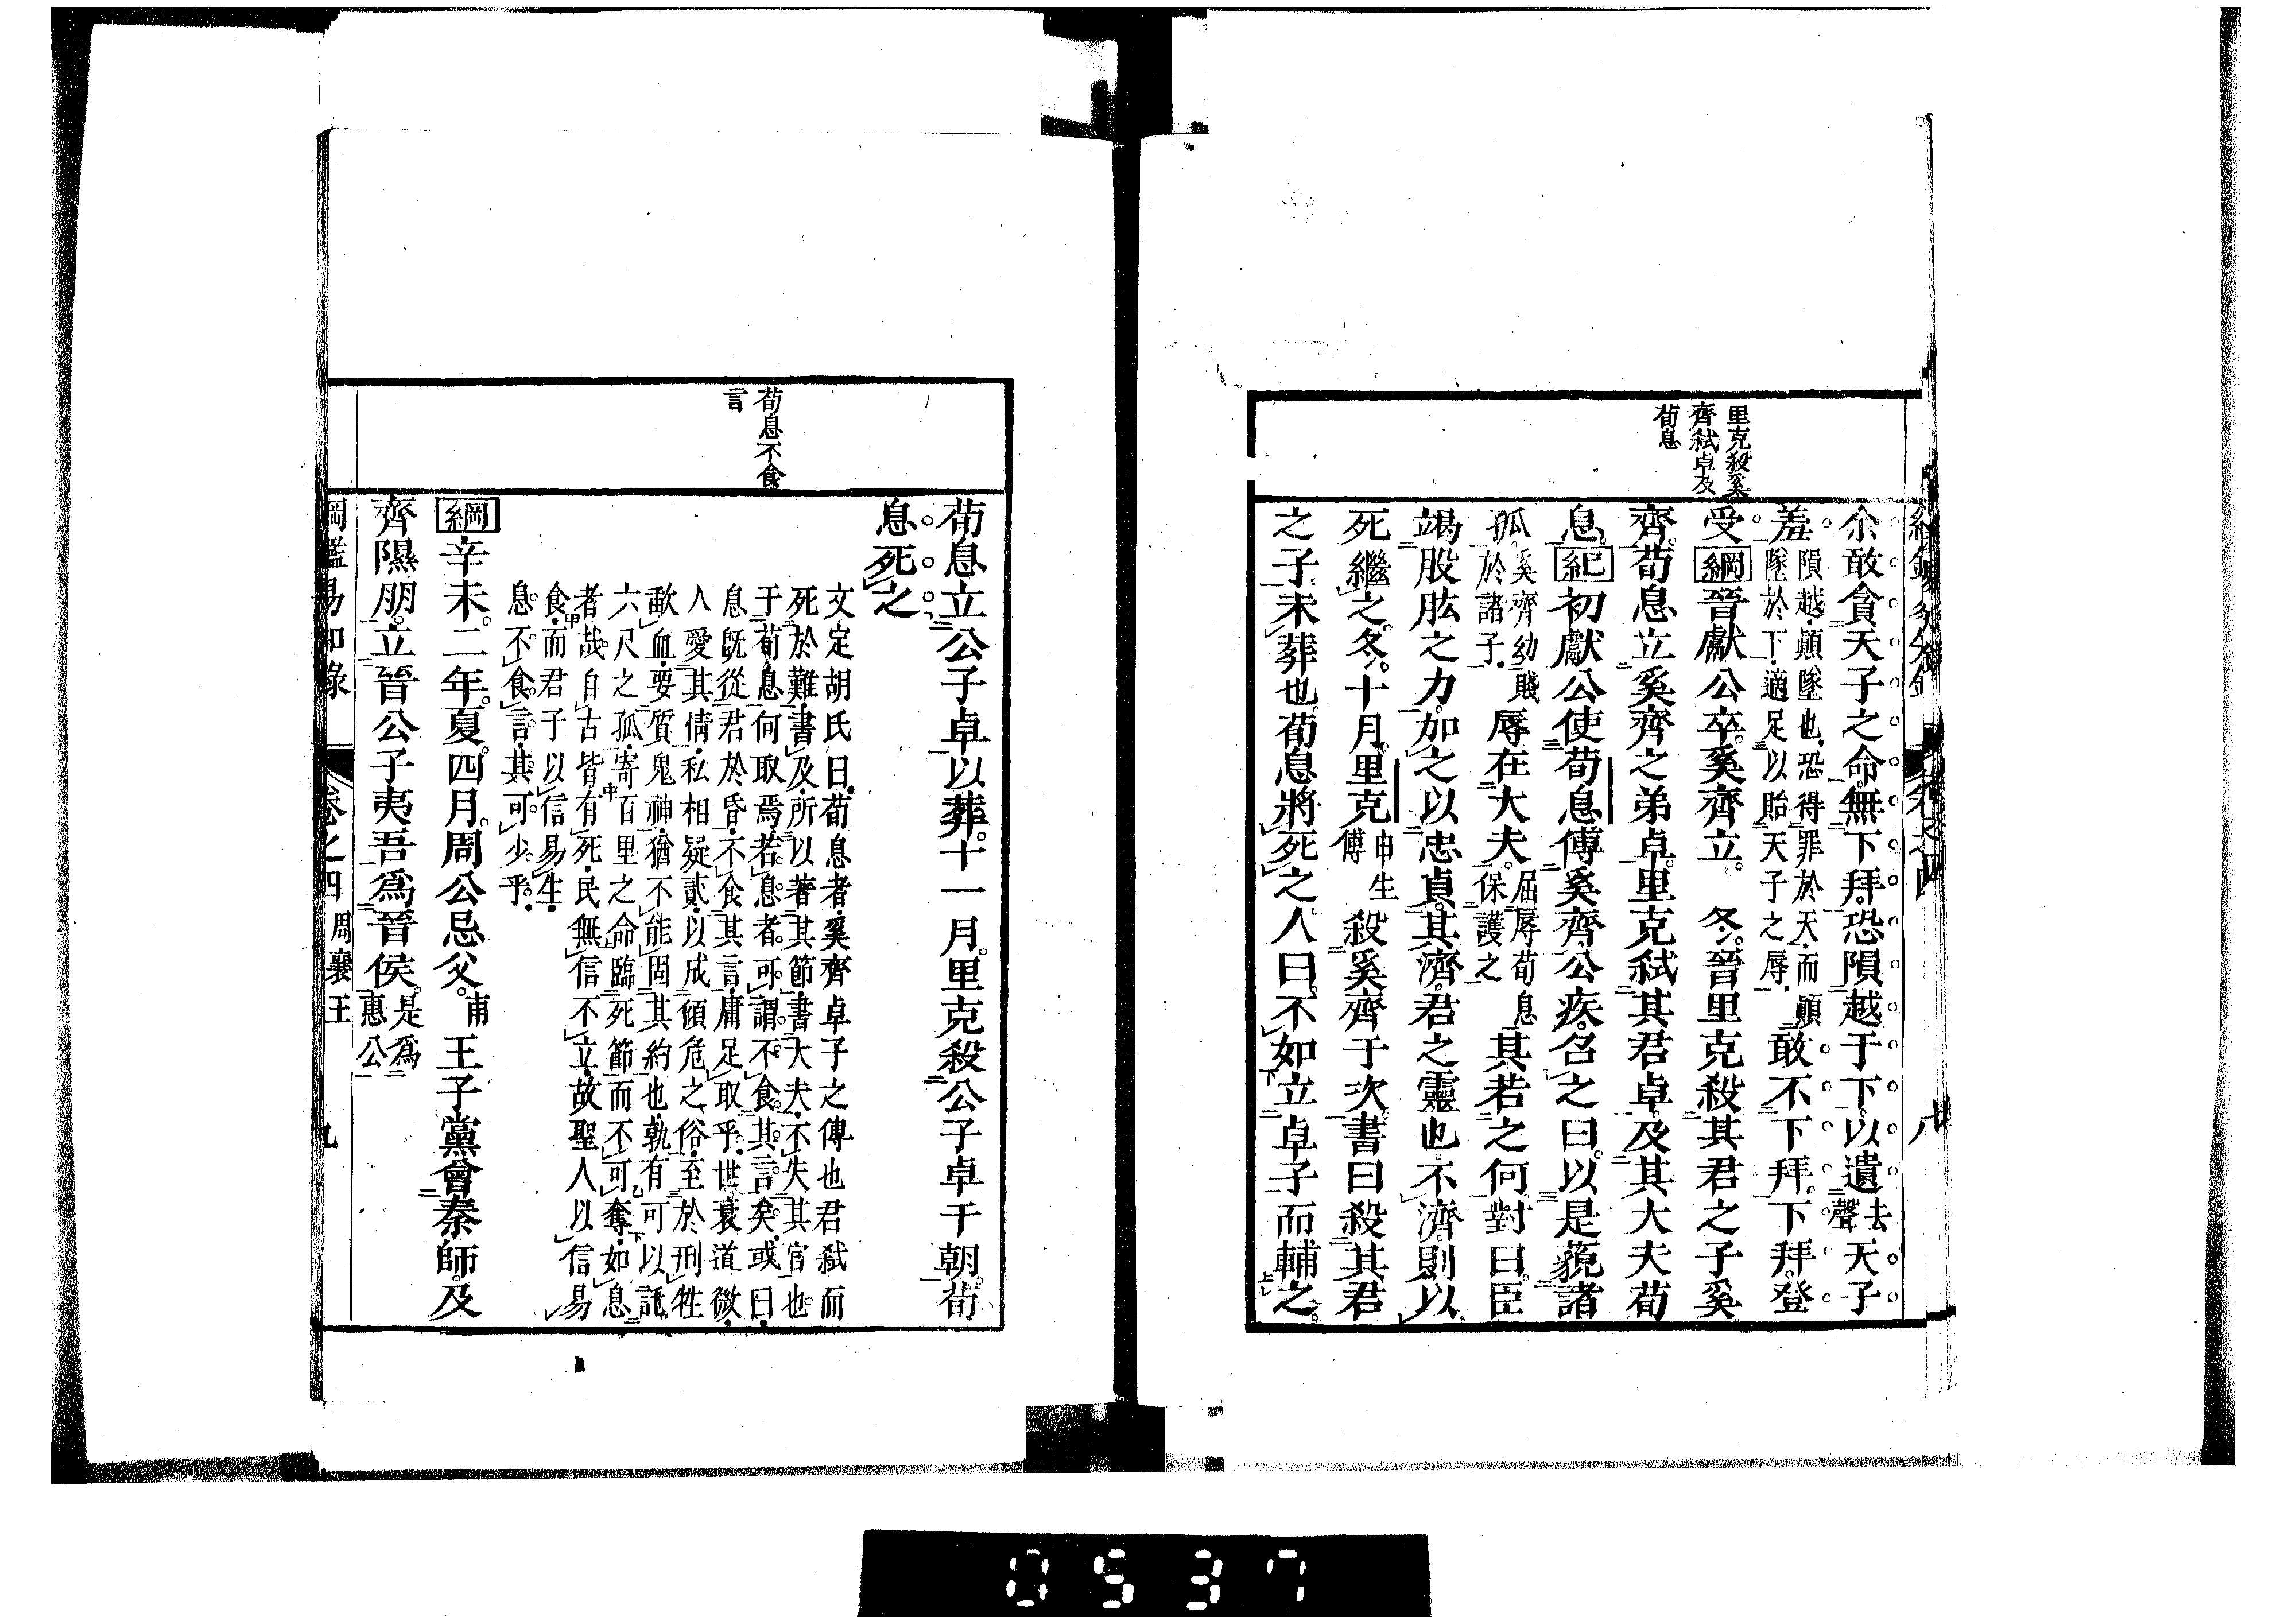 里克殺奚
齊弑卓及
荀息
余敢貪天子之命無下拜恐隕越于下以遺去聲天子
羞隕越顛墜也恐得罪於天而顛墜於下適足以貽天子之辱敢不下拜下拜登
受綱晉獻公卒奚齊立冬晉里克殺其君之子奚
齊荀息立奚齊之弟卓里克弑其君卓及其大夫荀
息紀初獻公使荀息傅奚齊公疾召之曰以是藐諸
孤奚齊幼賤於諸子辱在大夫屈辱荀息保護之其若之何對曰臣
竭股肱之力加之以忠貞其濟君之靈也不濟則以
死繼之冬十月里克申生傅殺奚齊于次書曰殺其君
之子未葬也荀息將死之人曰不如立卓子而輔之
荀息不食
言
荀息立公子卓以葬十一月里克殺公子卓于朝荀
息死之
文定胡氏曰荀息者奚齊卓子之傅也君弑而
死於難書及所以著其節書大夫不失其官也
于荀息何取焉若息者可謂不食其言矣或曰
息既從君於昏不食其言庸足取乎世衰道微
人愛其情私相疑貳以成傾危之俗至於刑牲
歃血要質鬼神猶不能固其約也孰有可以託
六尺之孤寄百里之命臨死節而不可奪如息
者哉自古皆有死民無信不立故聖人以信易
食而君子以信易生
息不食言其可少乎
綱辛未二年夏四月周公忌父甫王子黨會秦師及
齊隰朋立晉公子夷吾爲晉侯是爲惠公
綱鑑易知錄 卷之四 周襄王 九
0537